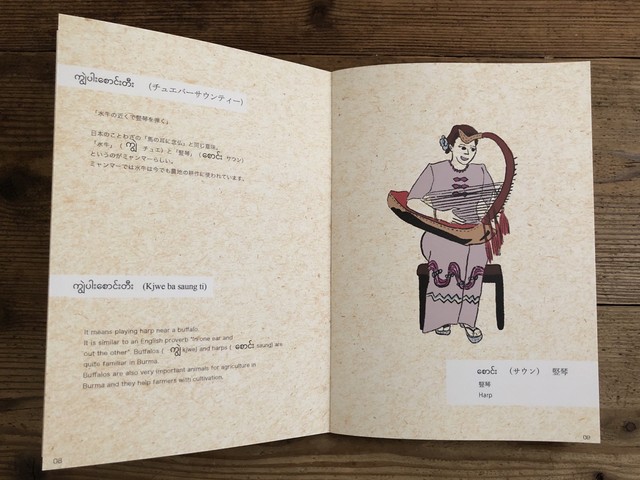 ကျွဲပါးစောင်းတီး （チュエバーサウンティー）
「水牛の近くで竪琴を弾く」
日本のことわざの「馬の耳に念仏」と同じ意味。
「水牛」（ ကျွဲ チュエ）と「竪琴」（ စောင်း サウン）
というのがミャンマーらしい。
ミャンマーでは水牛は今でも農地の耕作に使われています。
ကျွဲပါးစောင်းတီး (Kjwe ba saung ti)
It means playing harp near a buffalo.
It is similar to an English proverb "In one ear and
out the other". Buffalos ( ကျွဲ kjwe) and harps ( စောင်း saung) are
quite familiar in Burma.
Buffalos are also very important animals for agriculture in
Burma and they help farmers with cultivation.
08
စောင်း （サウン） 竪琴
竪琴
Harp
09